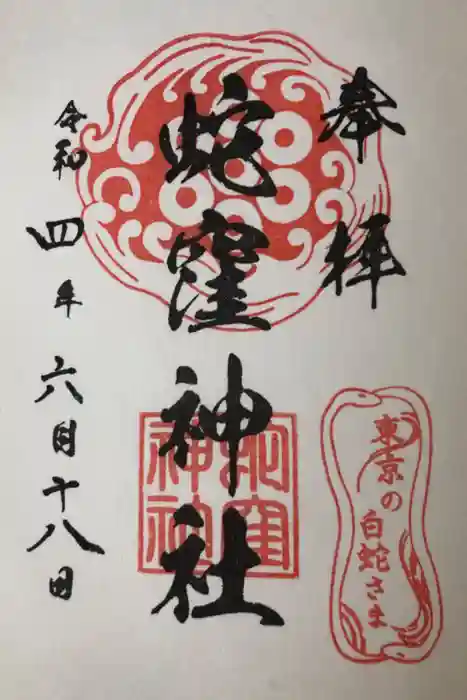 奉拝
蛇窪神社
令和四年六月十八日
東京の
白蛇さま
蛇窪
神社